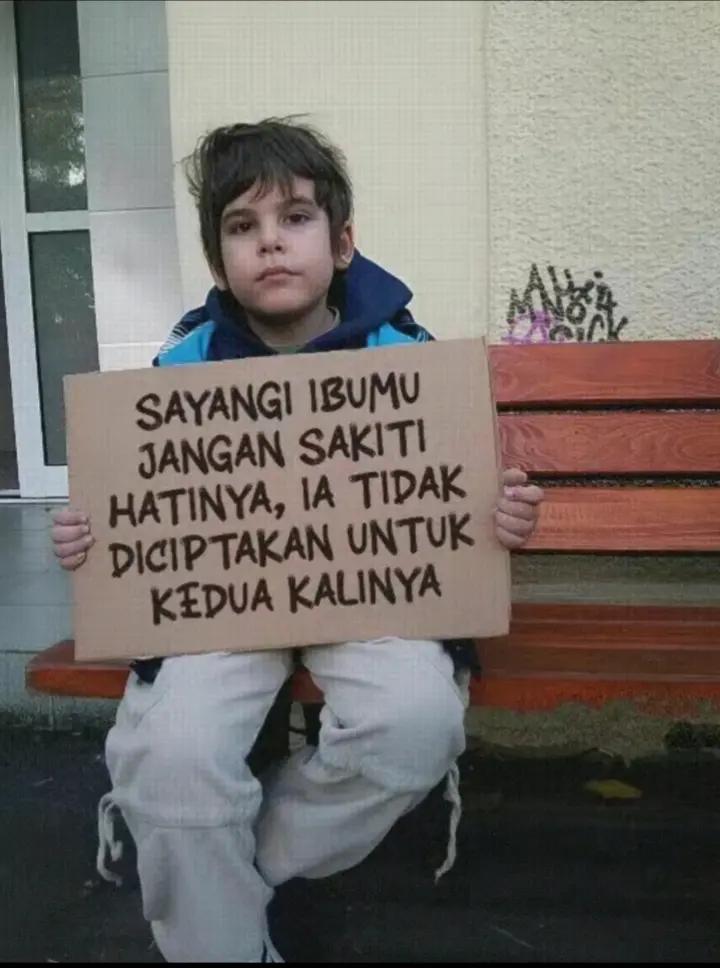 SAYANGI IBUMU
JANGAN SAKITI
HATINYA, IA TIDAK
DICIPTAKAN UNTUK
KEDUA KALINYA